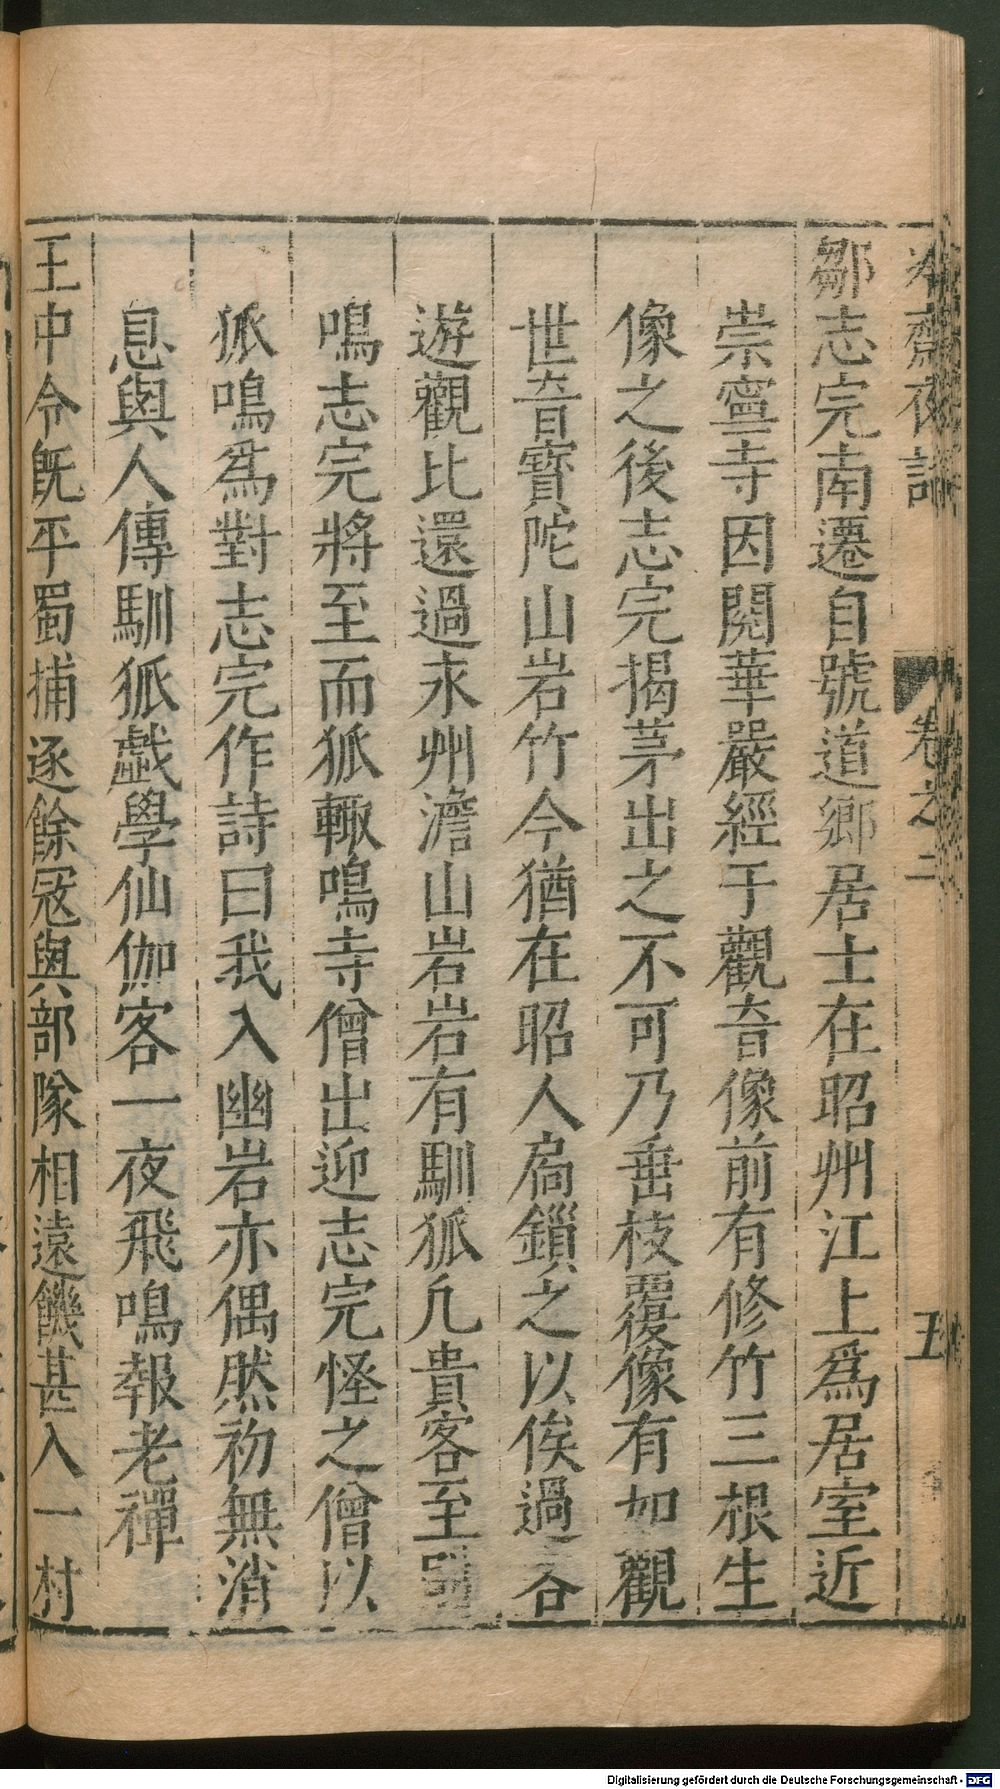 冷齋夜話
卷之二
五
鄒志完南遷自號道鄉居士在昭州江上爲居室近
崇寧寺因閱華嚴經于觀音像前有修竹三根生
像之後志完揭茅出之不可乃垂枝覆像有如觀
世音寶陀山岩竹今猶在昭人扃鎖之以俟過客
遊觀比還過永州澹山岩岩有馴狐凢貴客至則
鳴志完將至而狐輙鳴寺僧出迎志完怪之僧以
狐鳴爲對志完作詩曰我入幽岩亦偶然初無消
息與人傳馴狐戱學仙伽客一夜飛鳴報老禪
王中令旣平蜀捕逐餘冦與部隊相遠饑甚入一村
Digitalisierung gefördert durch die Deutsche Forschungsgemeinschaft - DFG